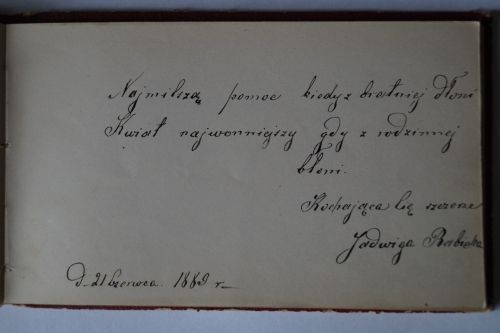 Najmilszą pomoc kiedy z bratniej dłoni
Kwiat najwonniejszy gdy z rodzinnej
błoni.
Kochająca Cię szczerze
Jadwiga
D. 21 Czerwca 1889 r.